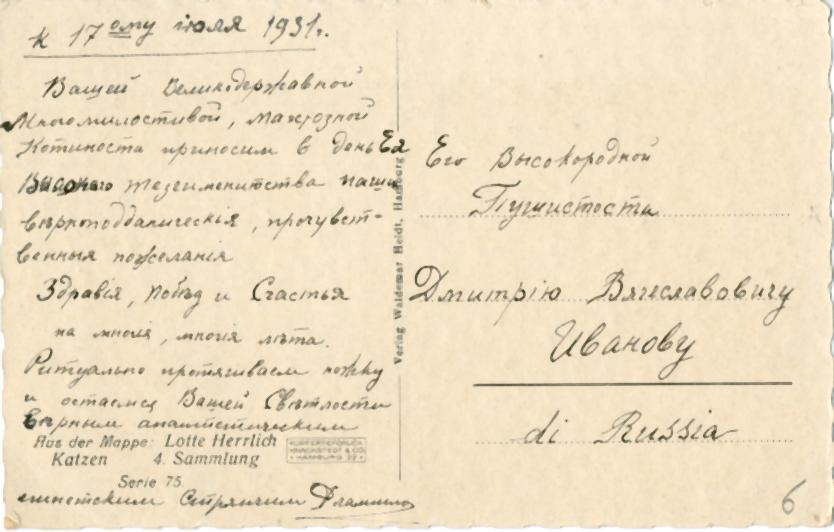 к 17ому июля 1931г.
Вашей Великодержавной
Многомилостивой, махрозной
Котиности приносим в день Ея
Высокаго тезеименитства наши
вѣрноподданическія, прочувст-
венныя пожеланія
Здравія, побѣд и Счастья
на многія, многія лѣта.
Ритуально протягиваем ножку
и остаемся Вашей Свѣтлости
Вѣрным
Aus der Mappe: Lotte Herrlich
Katzen 4. Sammlung
Serie 75.
KUPFERTIEFDRUCK
KNACKSTEDT & CO.
HAMBURG 22
египетским Стрягичим
Verlag Waldemar Heldt, Hamburg
Его Высокородной
Пушистости
Дмитрію Вячеславовичу
Иванову
di Russia
6